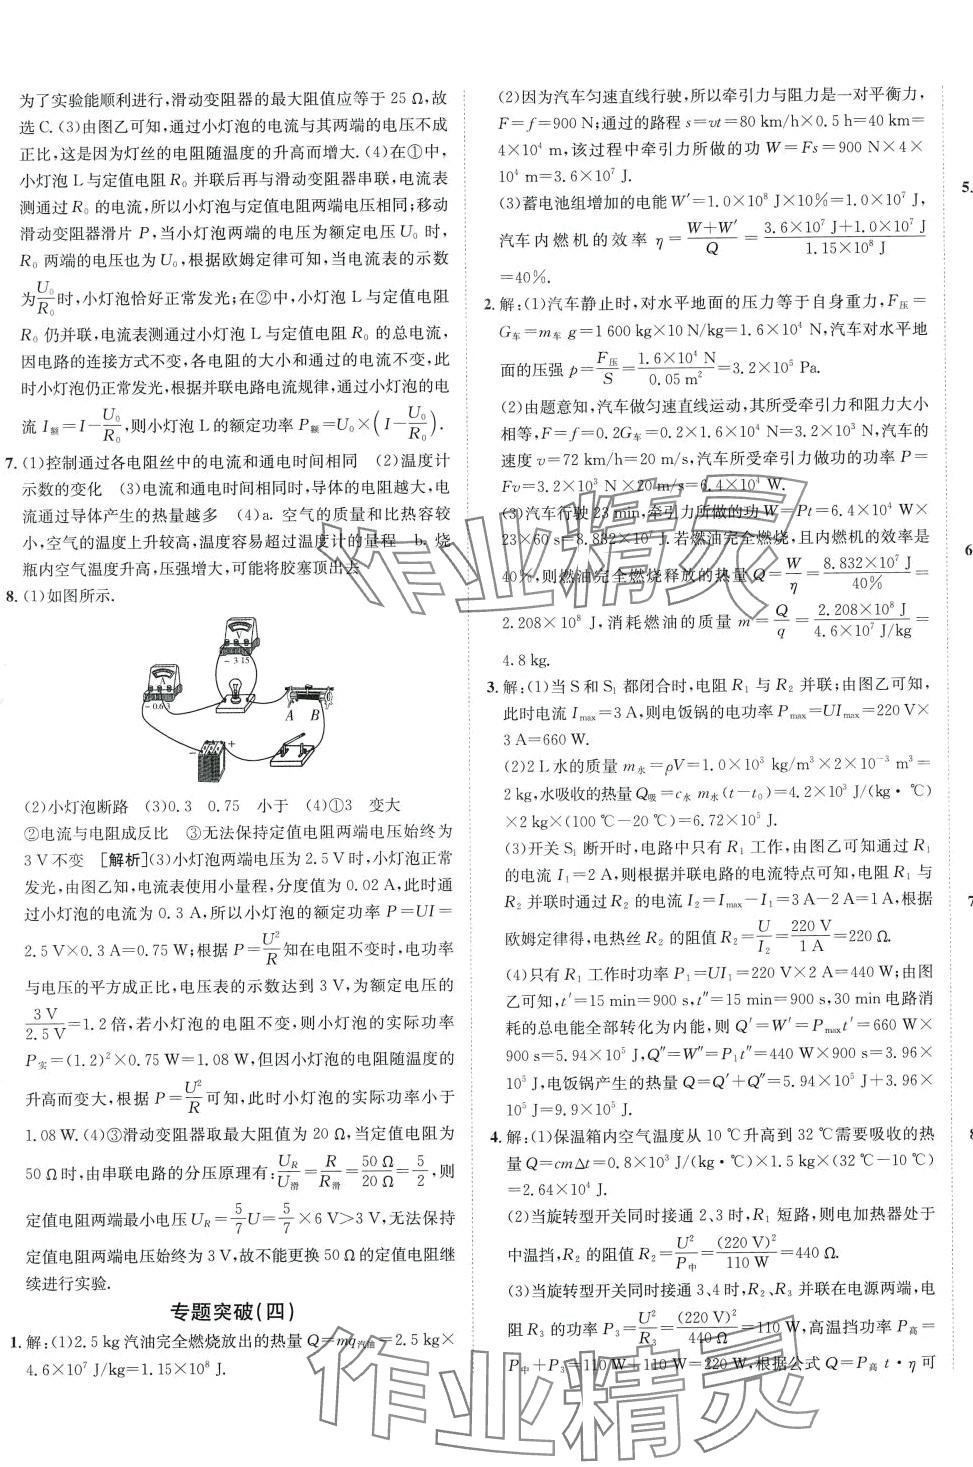 为了实验能顺利进行,滑动变阻器的最大阻值应等于 25 Ω,故
选 C. (3)由图乙可知,通过小灯泡的电流与其两端的电压不成
正比,这是因为灯丝的电阻随温度的升高而增大. (4)在①中,
小灯泡 L 与定值电阻 R₀ 并联后再与滑动变阻器串联,电流表
测通过 R₀ 的电流,所以小灯泡与定值电阻两端电压相同;移动
滑动变阻器滑片 P,当小灯泡两端的电压为额定电压 U₀ 时,
R₀ 两端的电压也为 U₀,根据欧姆定律可知,当电流表的示数
为U₀/R₀时,小灯泡恰好正常发光;在②中,小灯泡 L 与定值电阻
R₀ 仍并联,电流表测通过小灯泡 L 与定值电阻 R₀ 的总电流,
因电路的连接方式不变,各电阻的大小和通过的电流不变,此
时小灯泡仍正常发光,根据并联电路电流规律,通过小灯泡的电
流 I额=I−U₀/R₀,则小灯泡 L的额定功率 P额=U₀×(I−U₀/R₀).
7. (1)控制通过各电阻丝中的电流和通电时间相同 (2)温度计
示数的变化 (3)电流和通电时间相同时,导体的电阻越大,电
流通过导体产生的热量越多 (4)a. 空气的质量和比热容较
小,空气的温度上升较高,温度容易超过温度计的量程 b. 烧
瓶内空气温度升高,压强增大,可能将胶塞顶出去
8. (1)如图所示.
V
− 3 15
A
− 0.6 3
A B
− +
(2)小灯泡断路 (3)0.3 0.75 小于 (4)①3 变大
②电流与电阻成反比 ③无法保持定值电阻两端电压始终为
3 V不变 [解析](3)小灯泡两端电压为 2.5 V时,小灯泡正常
发光,由图乙知,电流表使用小量程,分度值为 0.02 A,此时通
过小灯泡的电流为 0.3 A,所以小灯泡的额定功率 P=UI=
2.5 V×0.3 A=0.75 W;根据 P=U²/R知在电阻不变时,电功率
与电压的平方成正比,电压表的示数达到 3 V,为额定电压的
3 V/2.5 V=1.2 倍,若小灯泡的电阻不变,则小灯泡的实际功率
P实=(1.2)²×0.75 W=1.08 W,但因小灯泡的电阻随温度的
升高而变大,根据 P=U²/R可知,此时小灯泡的实际功率小于
1.08 W. (4)③滑动变阻器取最大值为 20 Ω,当定值电阻为
50 Ω时,由串联电路的分压原理有:U_R/U滑=R/R滑=50 Ω/20 Ω=5/2,则
定值电阻两端最小电压 U_R=5/7U=5/7×6 V>3 V,无法保持
定值电阻两端电压始终为 3 V,故不能更换 50 Ω的定值电阻继
续进行实验.
专题突破(四)
1. 解:(1)2.5 kg 汽油完全燃烧放出的热量 Q=mq汽油=2.5 kg×
4.6×10⁷ J/kg=1.15×10⁸ J.
(2)因为汽车匀速直线行驶,所以牵引力与阻力是一对平衡力,
F=f=900 N;通过的路程 s=vt=80 km/h×0.5 h=40 km=
4×10⁴ m,该过程中牵引力所做的功 W=Fs=900 N×4×
10⁴ m=3.6×10⁷ J.
(3)蓄电池组增加的电能 W′=1.0×10⁸ J×10%=1.0×10⁷ J,
汽车内燃机的效率 η=(W+W′)/Q=(3.6×10⁷ J+1.0×10⁷ J)/(1.15×10⁸ J)
=40%.
2. 解:(1)汽车静止时,对水平地面的压力等于自身重力,F压=
G车=m车 g=1 600 kg×10 N/kg=1.6×10⁴ N,汽车对水平地
面的压强 p=F压/S=1.6×10⁴ N/0.05 m²=3.2×10⁵ Pa.
(2)由题意知,汽车做匀速直线运动,其所受牵引力和阻力大小
相等,F=f=0.2G车=0.2×1.6×10⁴ N=3.2×10³ N,汽车的
速度 v=72 km/h=20 m/s,汽车所受牵引力做功的功率 P=
Fv=3.2×10³ N×20 m/s=6.4×10⁴ W.
(3)汽车行驶 23 min,牵引力所做的功 W=Pt=6.4×10⁴ W×
23×60 s=8.832×10⁷ J.若燃油完全燃烧,且内燃机的效率是
40%,则燃油完全燃烧释放的热量 Q=W/η=8.832×10⁷ J/40%=
2.208×10⁸ J,消耗燃油的质量 m=Q/q=2.208×10⁸ J/4.6×10⁷ J/kg=
4.8 kg.
3. 解:(1)当 S 和 S₁ 都闭合时,电阻 R₁ 与 R₂ 并联;由图乙可知,
此时电流 Imax=3 A,则电饭锅的电功率 Pmax=UImax=220 V×
3 A=660 W.
(2)2 L 水的质量 m水=ρV=1.0×10³ kg/m³×2×10⁻³ m³=
2 kg,水吸收的热量Q吸=c水 m水(t−t₀)=4.2×10³ J/(kg·℃)
×2 kg×(100 ℃−20 ℃)=6.72×10⁵ J.
(3)开关 S₁ 断开时,电路中只有 R₁ 工作,由图乙可知通过 R₁
的电流 I₁=2 A,则根据并联电路的电流特点可知,电阻 R₁ 与
R₂ 并联时通过 R₂ 的电流 I₂=Imax−I₁=3 A−2 A=1 A,根据
欧姆定律得,电热丝 R₂ 的阻值 R₂=U/I₂=220 V/1 A=220 Ω.
(4)只有 R₁ 工作时功率 P₁=UI₁=220 V×2 A=440 W;由图
乙可知,t′=15 min=900 s,t″=15 min=900 s,30 min 电路消
耗的总电能全部转化为内能,则 Q′=W′=Pmaxt′=660 W×
900 s=5.94×10⁵ J,Q″=W″=P₁t″=440 W×900 s=3.96×
10⁵ J,电饭锅产生的热量 Q=Q′+Q″=5.94×10⁵ J+3.96×
10⁵ J=9.9×10⁵ J.
4. 解:(1)保温箱内空气温度从 10 ℃升高到 32 ℃需要吸收的热
量 Q=cmΔt=0.8×10³ J/(kg·℃)×1.5 kg×(32 ℃−10 ℃)
=2.64×10⁴ J.
(2)当旋转型开关同时接通 2、3 时,R₁ 短路,则电加热器处于
中温挡,R₂ 的阻值 R₂=U²/P中=(220 V)²/110 W=440 Ω.
(3)当旋转型开关同时接通 3、4 时,R₂、R₃ 并联在电源两端,电
阻 R₃ 的功率 P₃=U²/R₃=(220 V)²/440 Ω=110 W,高温挡功率 P高=
P中+P₃=110 W+110 W=220 W,根据公式 Q=P高 t·η 可
5.
6
7
8
作业精灵
作业精灵